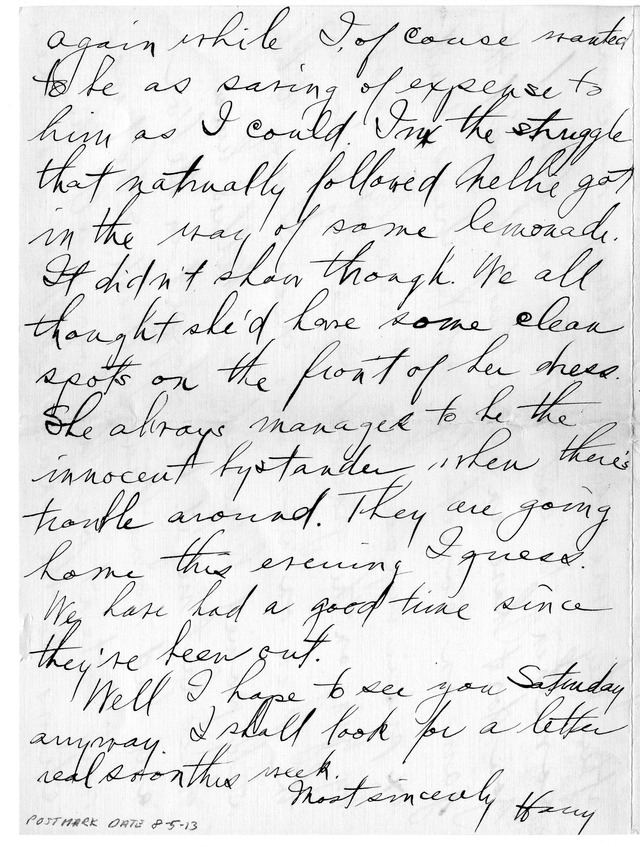 again while I, of couse wanted
to be as saving of expense to
him as I could. In the struggle
that natrually followed Nellie got
in the way of some lemonade.
It didn't show though. We all
thought she'd have some clean
spots on the front of her dress.
She always manages to be the
innocent bystander when there's
trouble around. They are going
home this evening I guess.
We have had a good time since
they've been out.
Well I hope to see you Saturday
anyway. I shall look for a letter
real soon this week.
Most sincerely Harry
POSTMARK DATE 8-5-13